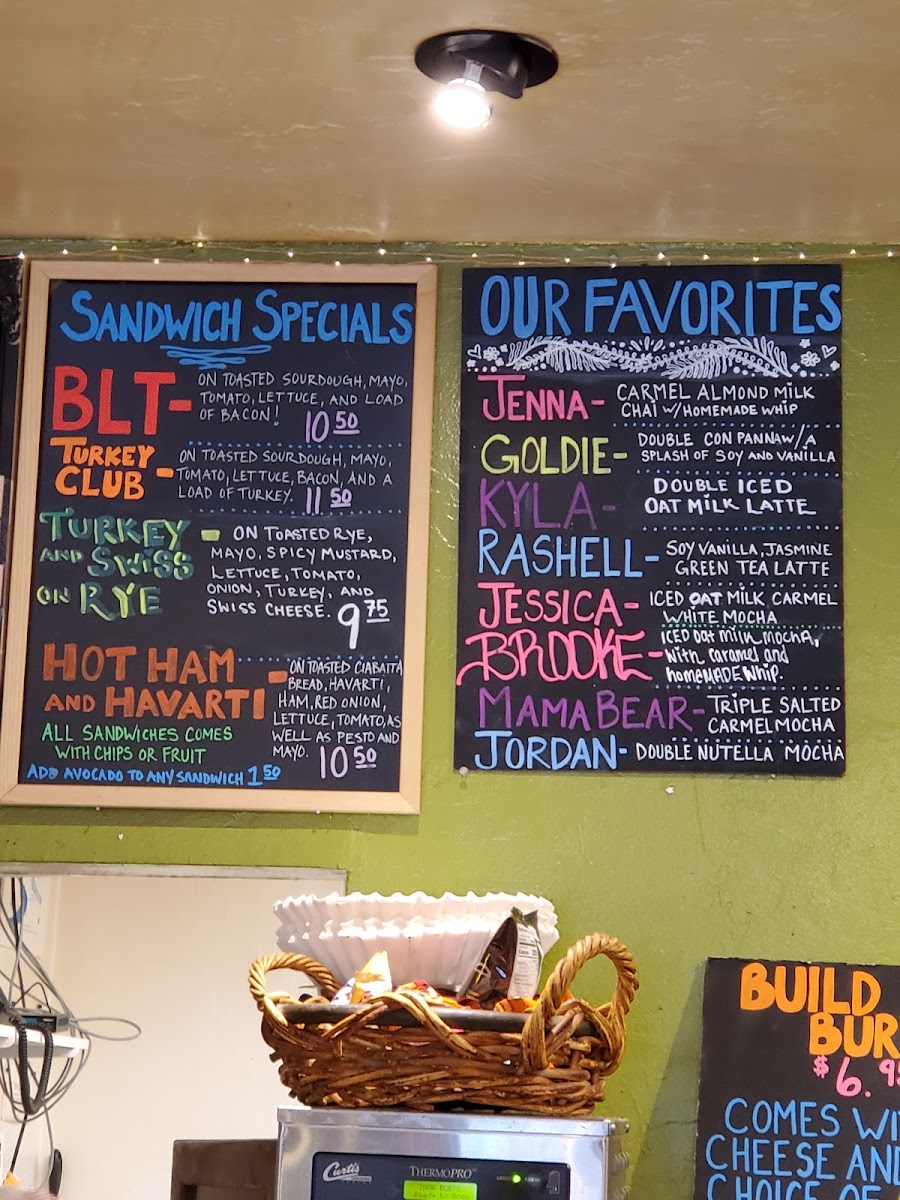 SANDWICH SPECIALS
BLT- ON TOASTED SOURDOUGH, MAYO,
TOMATO, LETTUCE, AND LOAD
OF BACON! 10 50
TURKEY
CLUB - ON TOASTED SOURDOUGH, MAYO,
TOMATO, LETTUCE, BACON, AND A
LOAD OF TURKEY. 11 50
TURKEY
AND SWISS
ON RYE - ON TOASTED RYE,
MAYO, SPICY MUSTARD,
LETTUCE, TOMATO,
ONION, TURKEY, AND
SWISS CHEESE. 9 75
HOT HAM
AND HAVARTI - ON TOASTED CIABATTA
BREAD, HAVARTI,
HAM, RED ONION,
LETTUCE, TOMATO, AS
WELL AS PESTO AND
MAYO. 10 50
ALL SANDWICHES COMES
WITH CHIPS OR FRUIT
ADD AVOCADO TO ANY SANDWICH 1 50
OUR FAVORITES
JENNA- CARMEL ALMOND MILK
CHAI W/ HOMEMADE WHIP
GOLDIE- DOUBLE CON PANNA W/ A
SPLASH OF SOY AND VANILLA
KYLA- DOUBLE ICED
OAT MILK LATTE
RASHELL- SOY VANILLA, JASMINE
GREEN TEA LATTE
JESSICA- ICED OAT MILK, CARMEL
WHITE MOCHA
BROOKE- ICED oat milk mocha,
with caramel and
homeMADE whip.
MAMA BEAR- TRIPLE SALTED
CARMEL MOCHA
JORDAN- DOUBLE NUTELLA MOCHA
BUILD
BUR
$6.95
COMES WI
CHEESE AND
CHOICE OF
Curtis
THERMOPRO